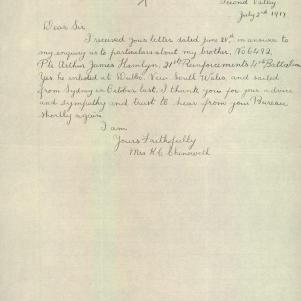 Second Valley
July 2nd 1917
Dear Sir,
I received your letter dated June 28th in answer to
my enquiry as to particulars about my brother, No 6492,
Pte Arthur James Hamlyn, 21st Reinforcements 4th Battalion
Yes he enlisted at Dubbo, New South Wales, and sailed
from Sydney in October last. I thank you for your advice
and sympathy and trust to hear from your Bureau
shortly again.
I am
Yours Faithfully
Mrs H. C. Chenoweth